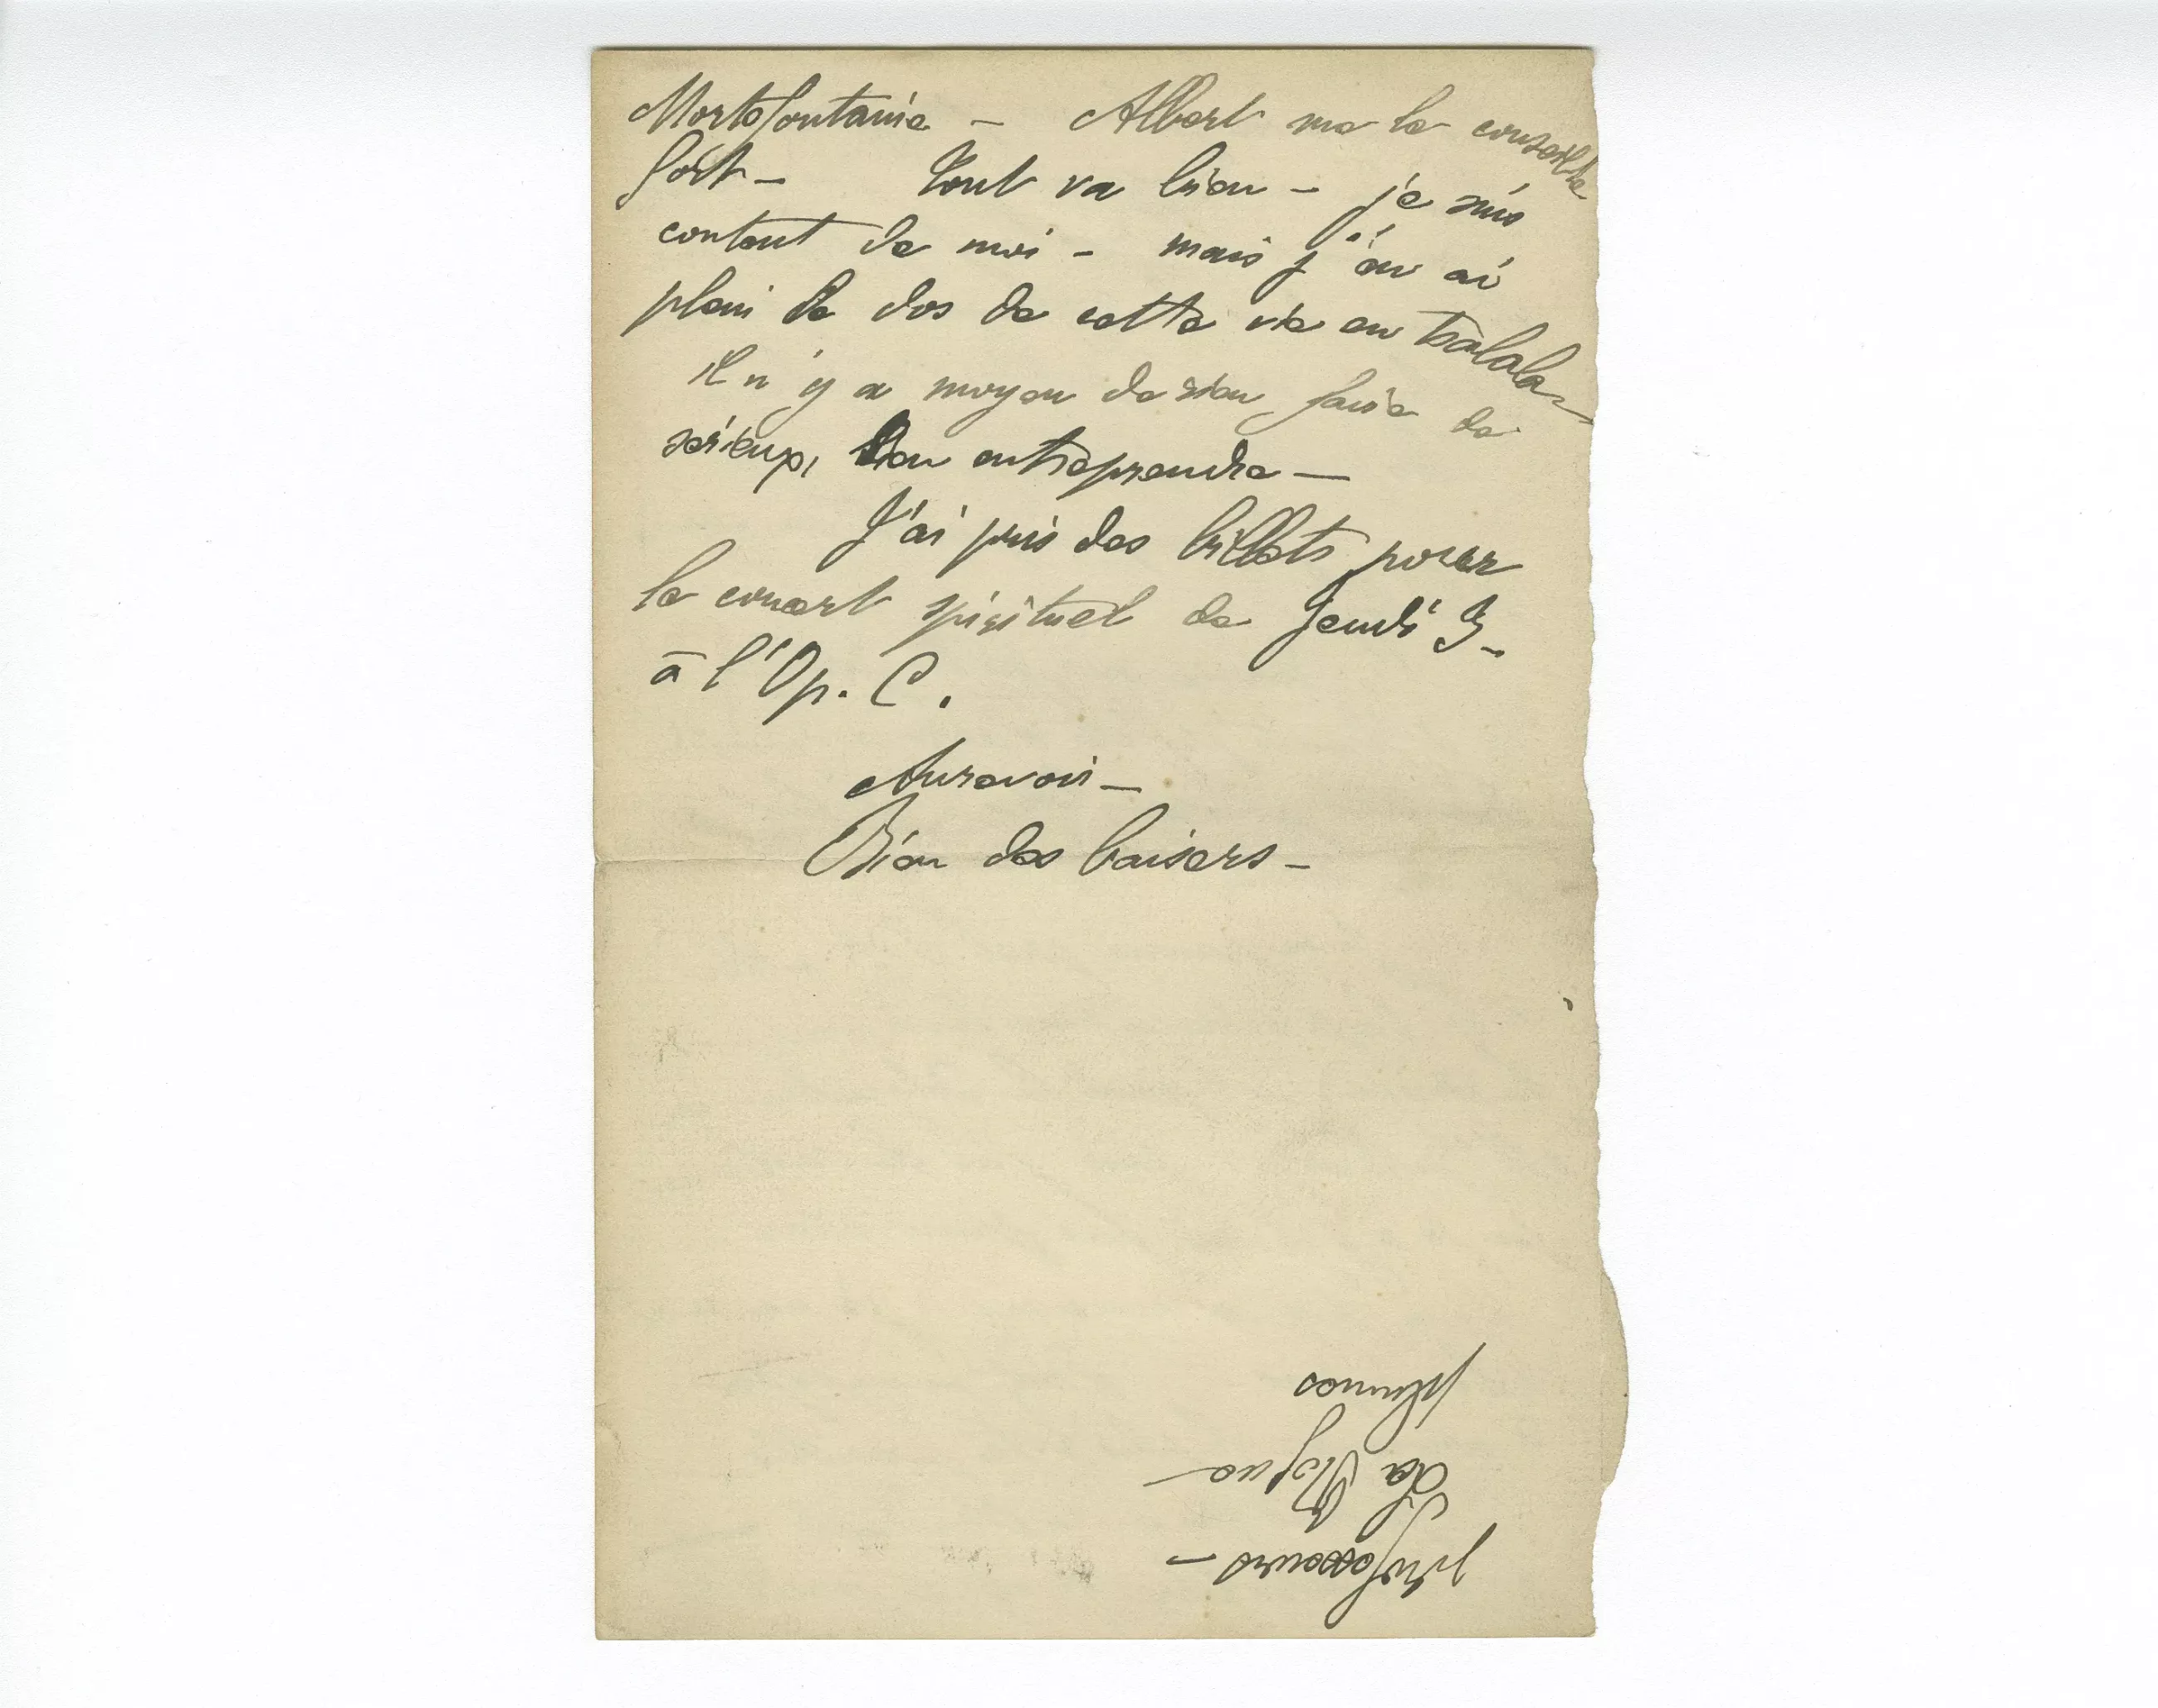 Mortefontaine - Albert me le conseille
fort - Tout va bien - je suis
content de moi - mais j'en ai
plein le dos de cette vie en tralala -
il n'y a moyen de rien faire de
sérieux, d'en entreprendre —
J'ai pris des billets pour
le concert spirituel de Jeudi 3 -
à l'Op. C.
Aurevoir —
Bien des baisers -
professeurs -
La Vigne -
plumes